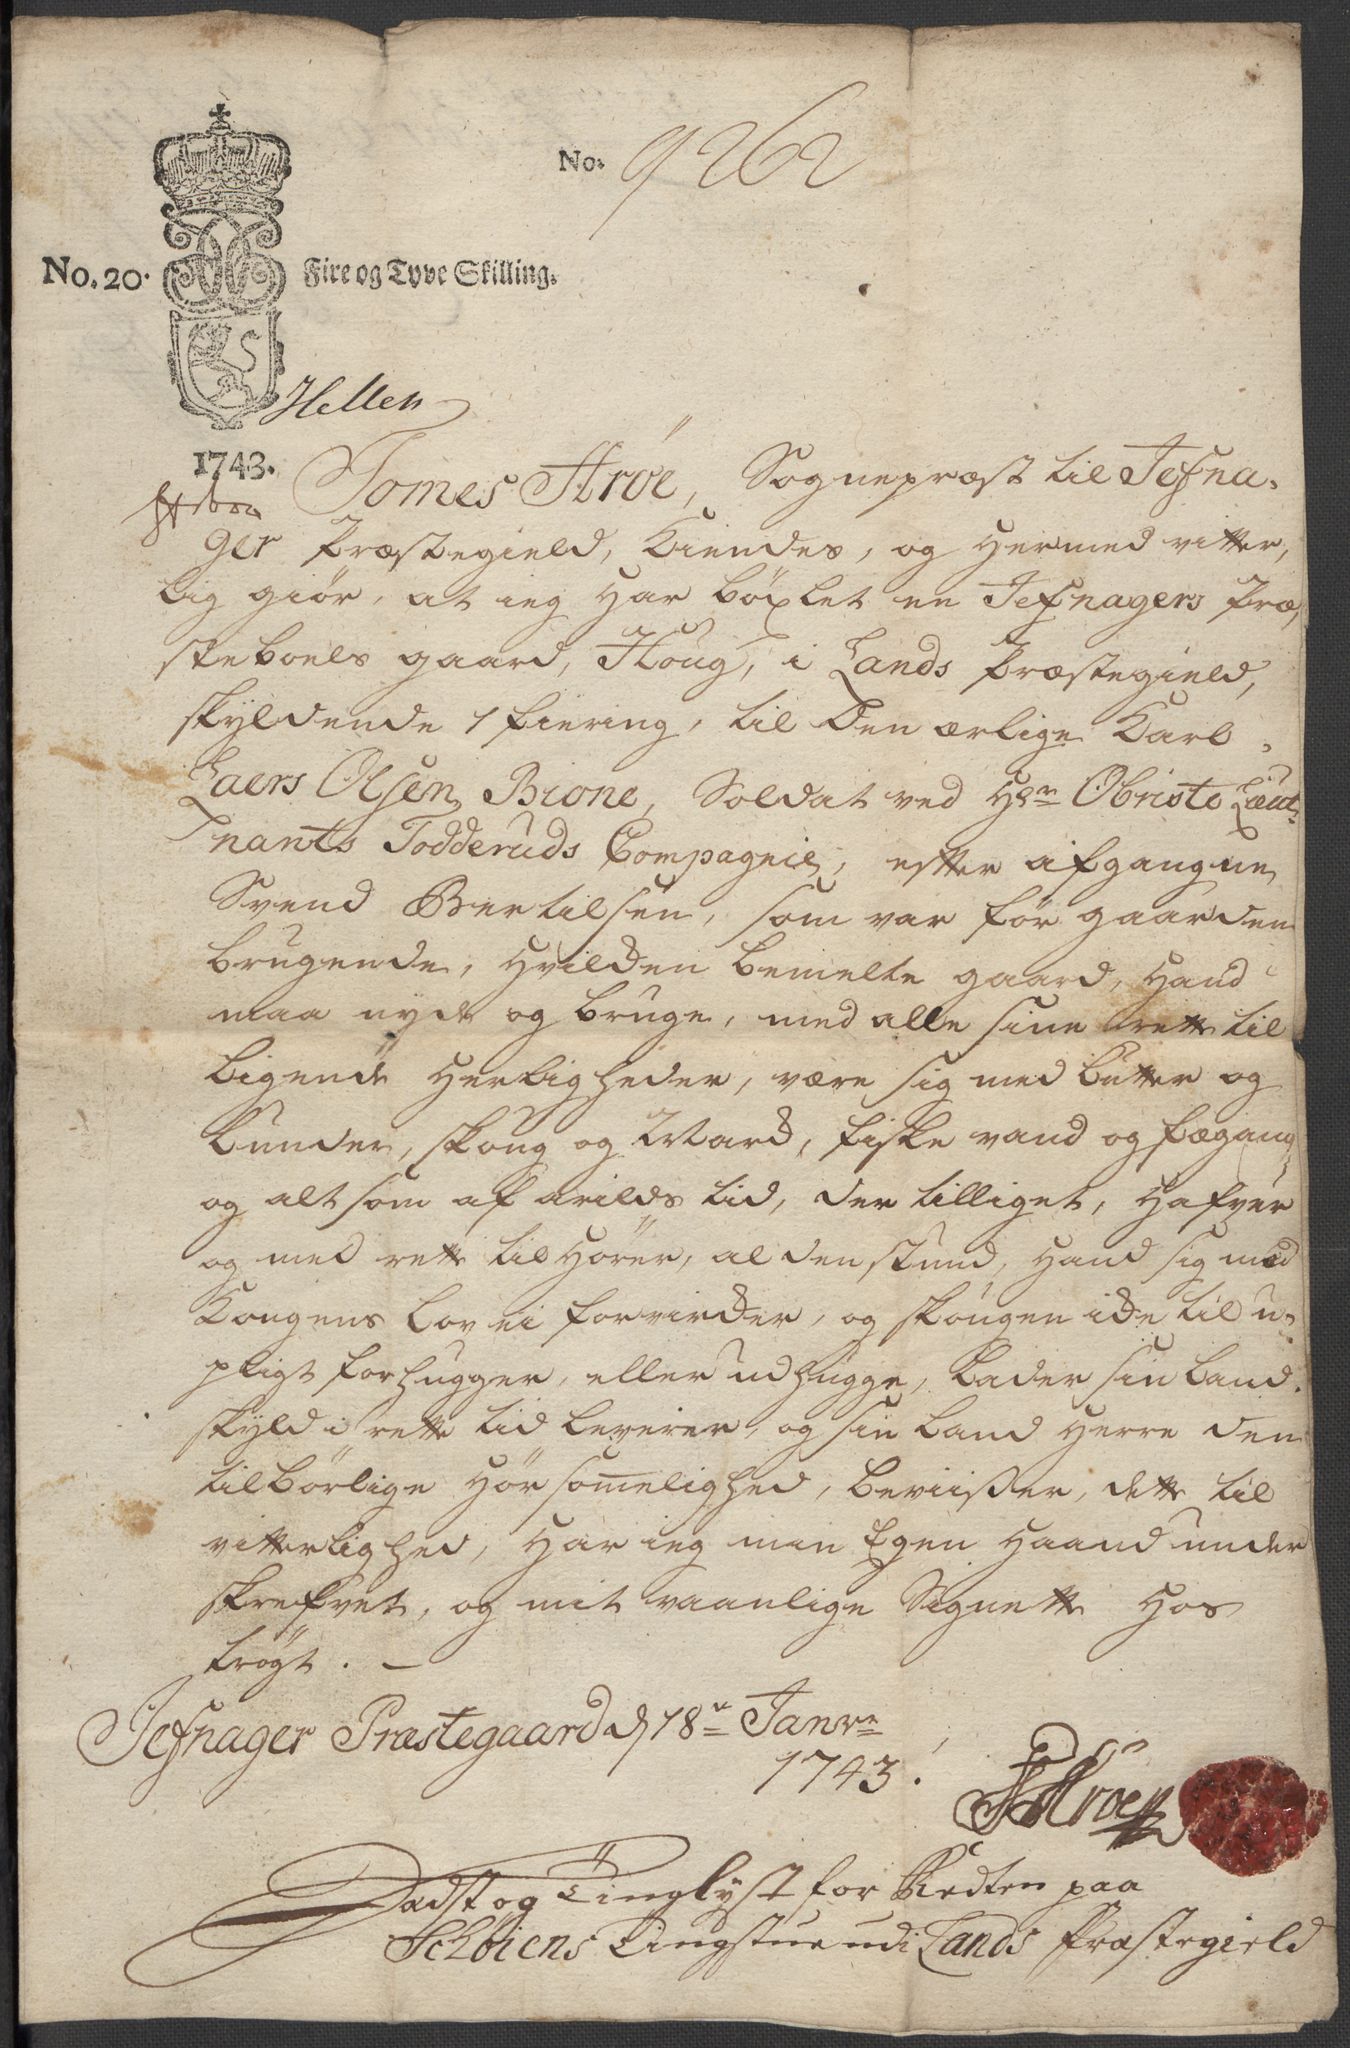 No. 9262
No. 20. Fire og Tyve Skilling.
Hellen
1743.
Tomes Arøe, Sognepræst til Jefna-
ger Præstegield, Kiendes, og hermed vitter,
lig giør, at ieg har böxlet en Jefnagers Præ,
steboels gaard, Houg, i Lands Præstegield,
skyldende 1 fiering, til den ærlige Karl,
Laers Olsen Bione, Soldat ved Hr Obriste Lieut,
nants Todderuds Compagnie, efter afgangne
Svend Bertilsen, som var før gaarden
brugende, hvilken bemelte gaard, hand
maa nyde og bruge, med alle sine rette til
ligende herligheder, være sig med lutter og
lunder, skoug og Mard, fiske vand og fægang
og alt som af arilds tid, der tilliget, hafver
og med rette tilhører, alden stund, hand sig med
Kongens lov ei forvirker, og skougen icke til u-
pligt forhugger, eller udhugge, lader sin land-
skyld i rette tid leverer, og sin land herre den
tilbörlige hörsomelighed, beviisser, dette til
vitterlighed, har ieg min Egen haand under
skrefvet, og mit vaanlige Signette hos
trögt.
Jefnager Præstegaard d 18de Janvr
1743.
T Arøe
Læst og Tinglyst for Retten paa
Schöiens Tingstue udi Lands Præstegield